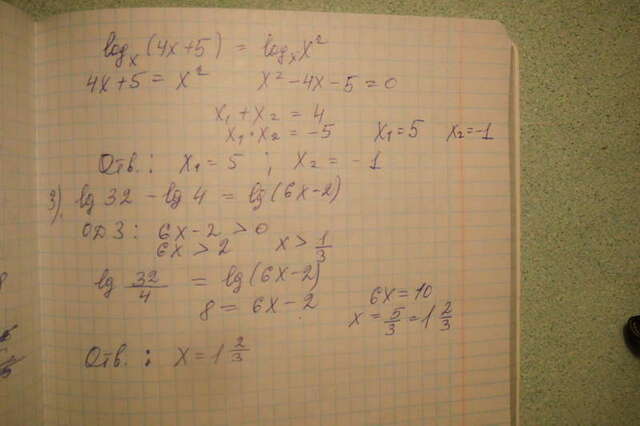 log_x (4x+5) = log_x x²
4x+5 = x² x²-4x-5=0
x₁+x₂ = 4
x₁·x₂ = -5 x₁=5 x₂=-1
Отв.: x₁=5 ; x₂ = -1
3). lg 32 - lg 4 = lg(6x-2)
ОДЗ: 6x-2 >0
6x > 2 x > 1/3
lg 32/4 = lg(6x-2)
8 = 6x-2 6x=10
x = 5/3 = 1 2/3
Отв. : x = 1 2/3